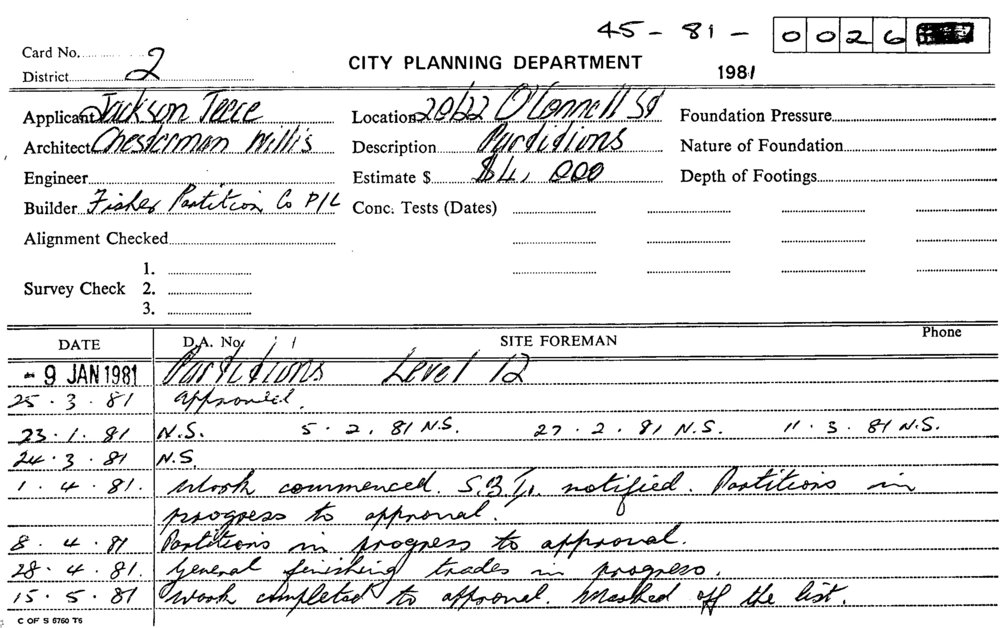 45 - 81 - 0026
Card No. 2
District
CITY PLANNING DEPARTMENT
1981
Applicant Jackson Teece
Location 20/22 O'Connell St
Foundation Pressure
Architect Chesterman Willis
Description Partitions
Nature of Foundation
Engineer
Estimate $ $4,000
Depth of Footings
Builder Fisher Partition Co P/L
Conc. Tests (Dates)
Alignment Checked
Survey Check
1.
2.
3.
DATE D.A. No. SITE FOREMAN Phone
- 9 JAN 1981 Partitions Level 12
25 . 3 . 81 approved.
23 . 1 . 81 N.S. 5 . 2 . 81 N.S. 27 . 2 . 81 N.S. 11 . 3 . 81 N.S.
24 . 3 . 81 N.S.
1 . 4 . 81. Work commenced. notified. Partitions in
progress to approval.
8 . 4 . 81 Partitions in progress to approval.
28 . 4 . 81. General finishing trades in progress.
15 . 5 . 81 Work completed to approval. Marked off the list.
C OF S 6760 T6